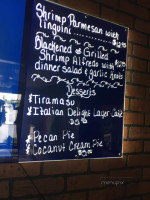 Shrimp Parmesan with
linguini
Blackened or Grilled
Shrimp Alfredo with
dinner salad & garlic knots
Desserts
Tiramasu
Italian Delight Layer Cake
Pecan Pie
Coconut Cream Pie